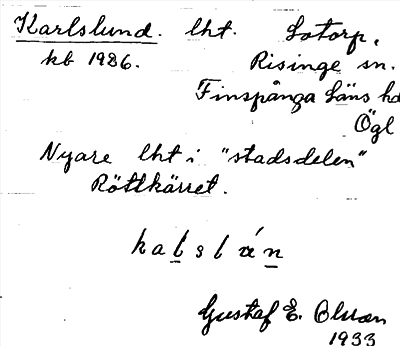 Karlslund. lht. Lotorp,
kb 1986. Risinge sn.
Finspånga läns hd
Ögl
Nyare lht i "stadsdelen"
Röttkärret.
Gustaf E. Olsson
1933